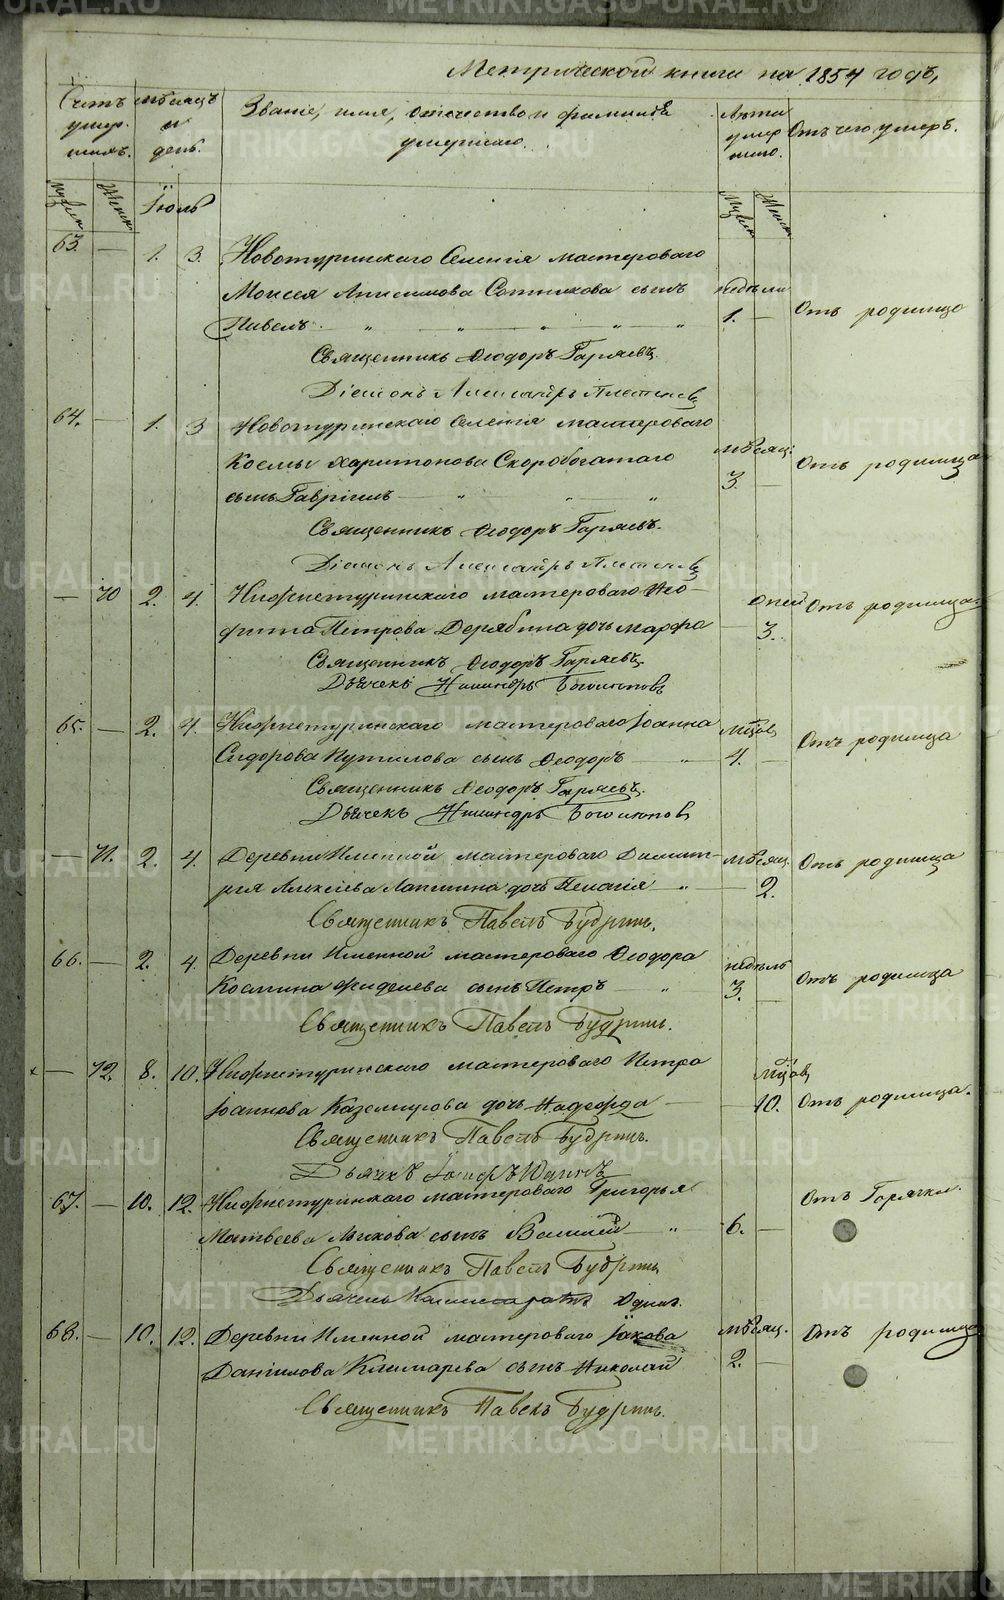 Метрической книги на 1854 годъ,
Счетъ умер- шихъ. Мѣсяцъ и день. Званіе, имя, отчество и фамилія умершаго. Лѣта умер шаго. Отъ чего умеръ.
Мужеск. Женск. Іюль Мужеск. Женск.
63. — 1. 3. Новотуринскаго Селенія мастероваго
Моисея Анисимова Сотникова сынъ недѣли
Павелъ 1. — Отъ родимца
Священникъ Ѳеодоръ Гаряевъ.
Діаконъ Александръ
64. — 1. 3 Новотуринскаго Селенія мастероваго
Космы Харитонова Скоробогатаго мѣсяц: Отъ родимца
сынъ Гавріилъ 3. —
Священникъ Ѳеодоръ Гаряевъ.
Діаконъ Александръ
— 70 2. 4. Нижнетуринскаго мастероваго Нео- дней Отъ родимца.
фита Петрова Дерябина дочь Марфа — 3.
Священникъ Ѳеодоръ Гаряевъ
Дьячекъ
65. — 2. 4. Нижнетуринскаго мастероваго Іоанна мѣсяцов Отъ родимца
Сидорова Путилова сынъ Ѳеодоръ 4. —
Священникъ Ѳеодоръ Гаряевъ.
Дьячекъ
— 71. 2. 4. Деревни Именной мастероваго Димит- мѣсяц. Отъ родимца
рія Алексіева Лапшина дочь Пелагія — 2.
Священникъ Павелъ Будринъ.
66. — 2. 4. Деревни Именной мастероваго Ѳеодора недѣль Отъ родимца
Космина сынъ Петръ 3. —
Священникъ Павелъ Будринъ.
× — 72. 8. 10. Нижнетуринскаго мастероваго Петра мцов
Іоаннова Каземирова дочь Надежда — 10. Отъ родимца.
Священникъ Павелъ Будринъ.
Дьячекъ Іосифъ Юдинъ
67. — 10. 12. Нижнетуринскаго мастероваго Григорья Отъ Горячки.
Матвеева Лыкова сынъ Василій 6. —
Священникъ Павелъ Будринъ
Дьячекъ Юдинъ.
68. — 10. 12. Деревни Именной мастероваго Іакова мѣсяц. Отъ родимца
Даніилова Климарева сынъ Николай 2. —
Священникъ Павелъ Будринъ.
METRIKI.GASO-URAL.RU